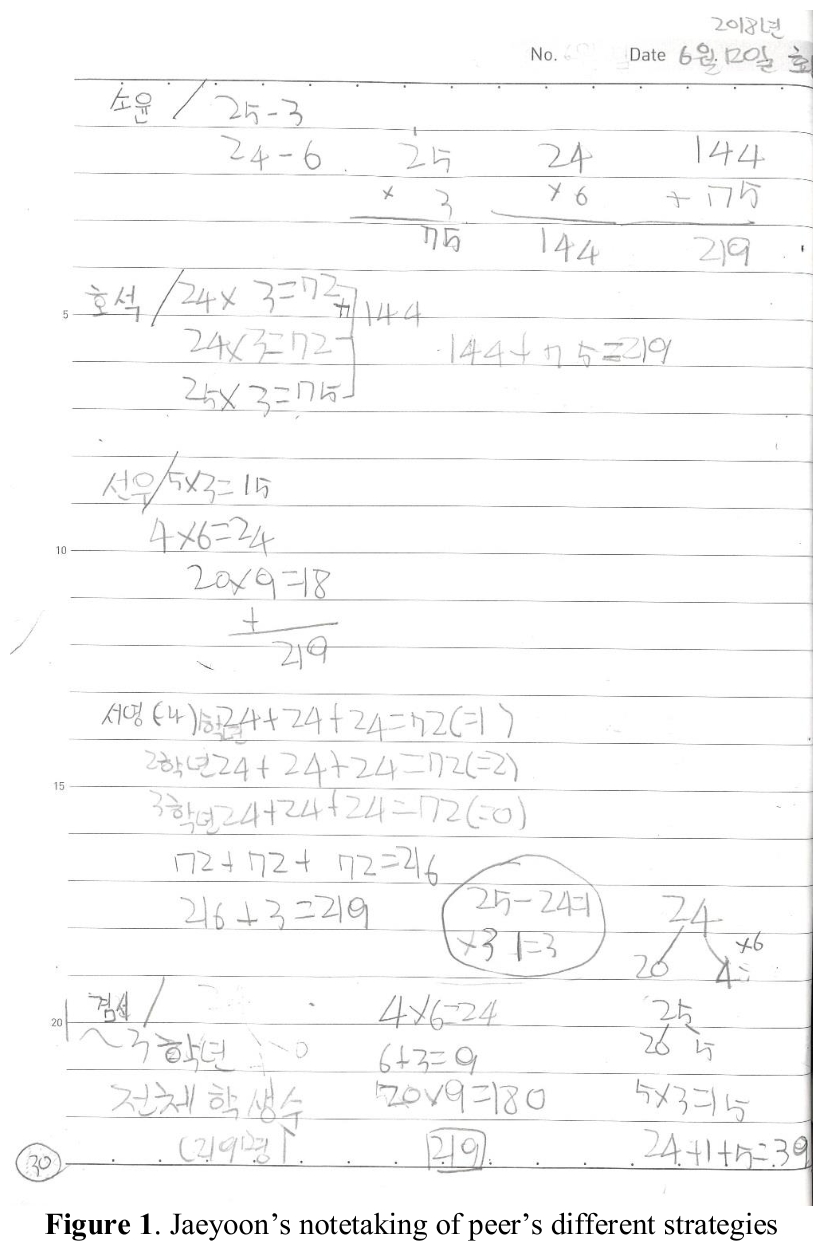 2018년
No. Date 6월 120일 화
소윤 / 25-3
24-6 25 24 144
× 3 ×6 + 175
75 144 219
호석 / 24× 3=72
5 144
24×3=72 144+75=219
25×3=75
선우/5×3=15
10 4×6=24
20×9=18
+
219
서영(나)1학년24+24+24=72(=1 )
2학년24+24+24=72(=2)
15
3학년24+24+24=72(=0)
72+72+ 72=216
216+3=219 25-24=1 24
×3 1=3 ×6
20 4
/ 4×6=24 25
20 ~3학년 6+3=9 20 5
전체 학생수 20×9=180 5×3=15
(219명) 219 24+1+5=39
30
Figure 1. Jaeyoon's notetaking of peer's different strategies